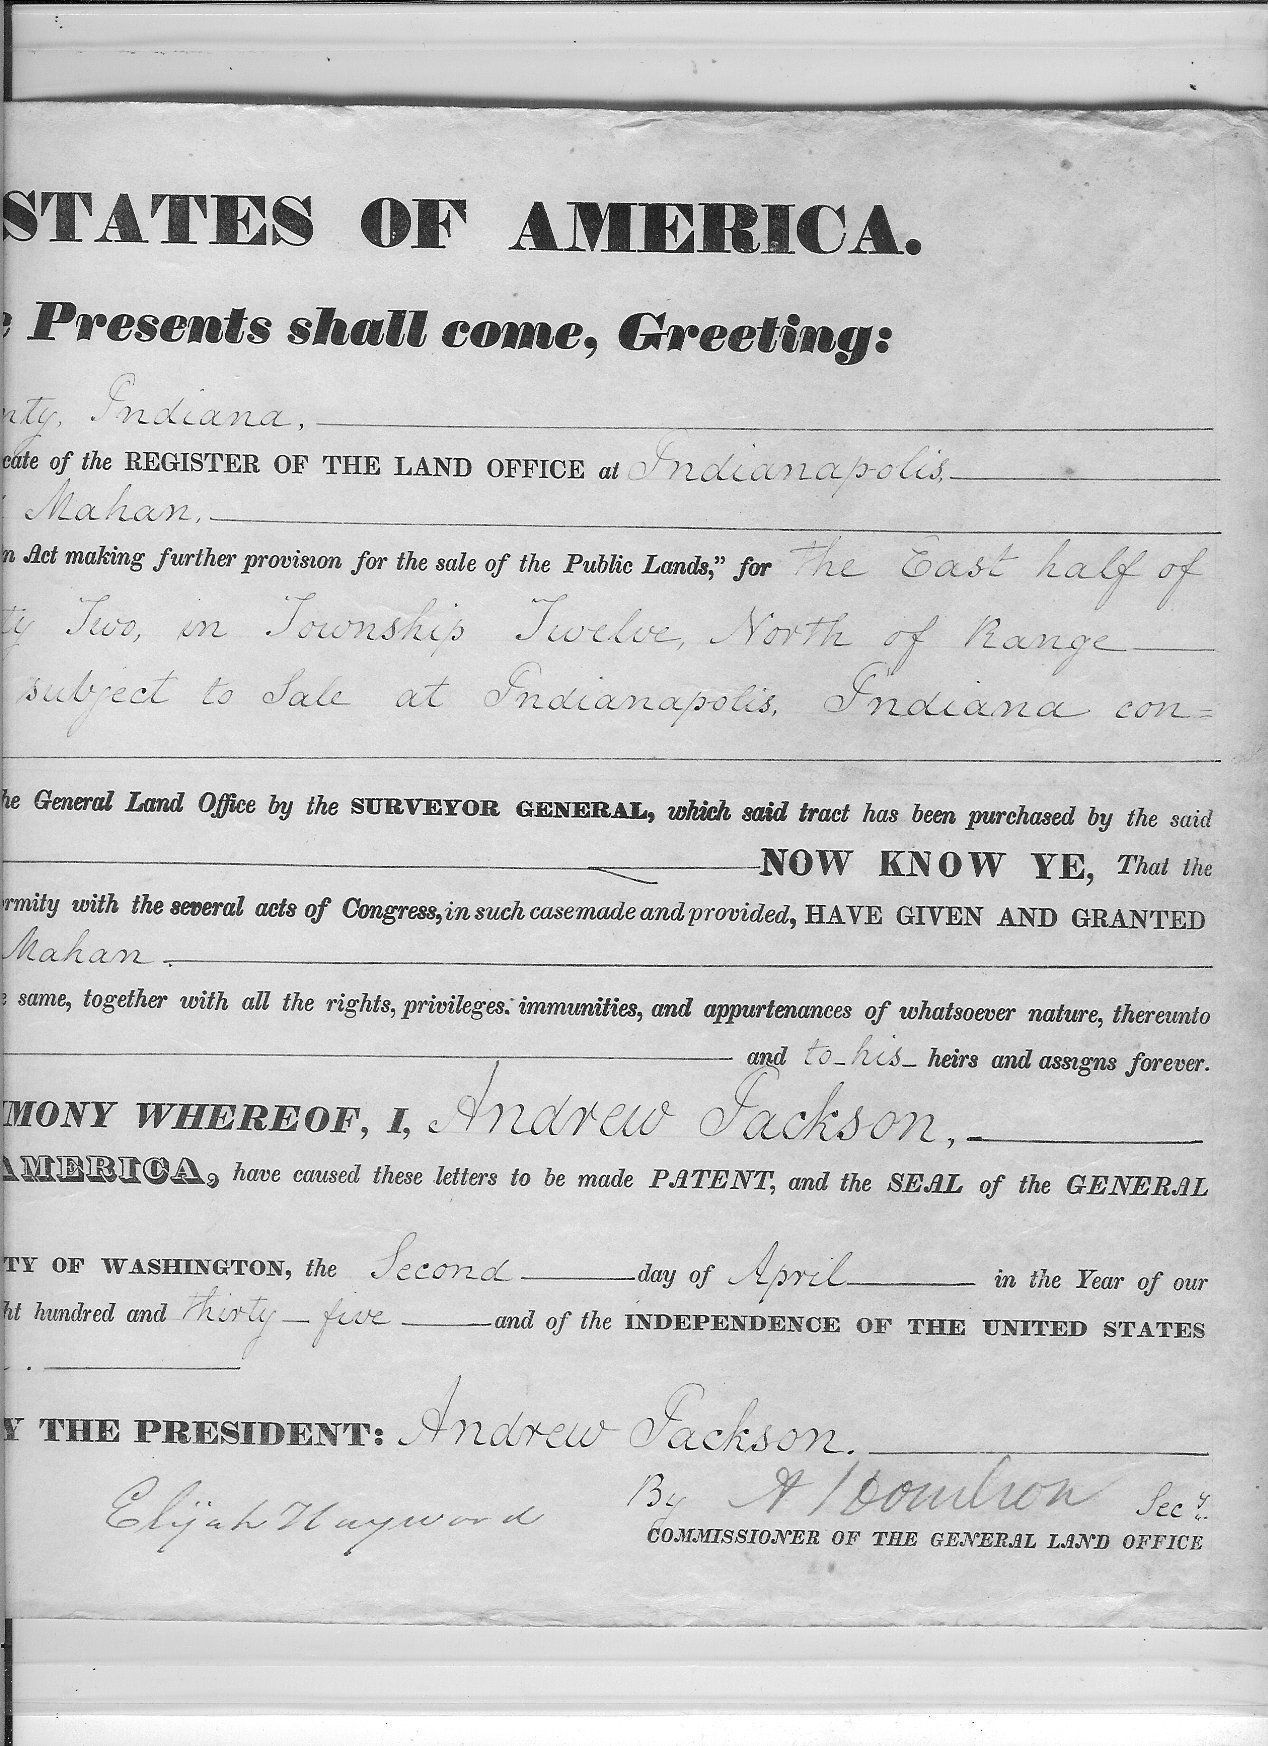 STATES OF AMERICA.
e Presents shall come, Greeting:
nty, Indiana.
cate of the REGISTER OF THE LAND OFFICE at Indianapolis,
Mahan,
n Act making further provision for the sale of the Public Lands,” for the East half of
ty Two, in Township Twelve, North of Range
subject to Sale at Indianapolis, Indiana con=
he General Land Office by the SURVEYOR GENERAL, which said tract has been purchased by the said
NOW KNOW YE, That the
rmity with the several acts of Congress, in such case made and provided, HAVE GIVEN AND GRANTED
Mahan.
e same, together with all the rights, privileges, immunities, and appurtenances of whatsoever nature, thereunto
and to his heirs and assigns forever.
MONY WHEREOF, I, Andrew Jackson,
AMERICA, have caused these letters to be made PATENT, and the SEAL of the GENERAL
TY OF WASHINGTON, the Second day of April in the Year of our
ht hundred and thirty-five and of the INDEPENDENCE OF THE UNITED STATES
Y THE PRESIDENT: Andrew Jackson.
By A J Donelson Secy.
Elijah Hayward
COMMISSIONER OF THE GENERAL LAND OFFICE